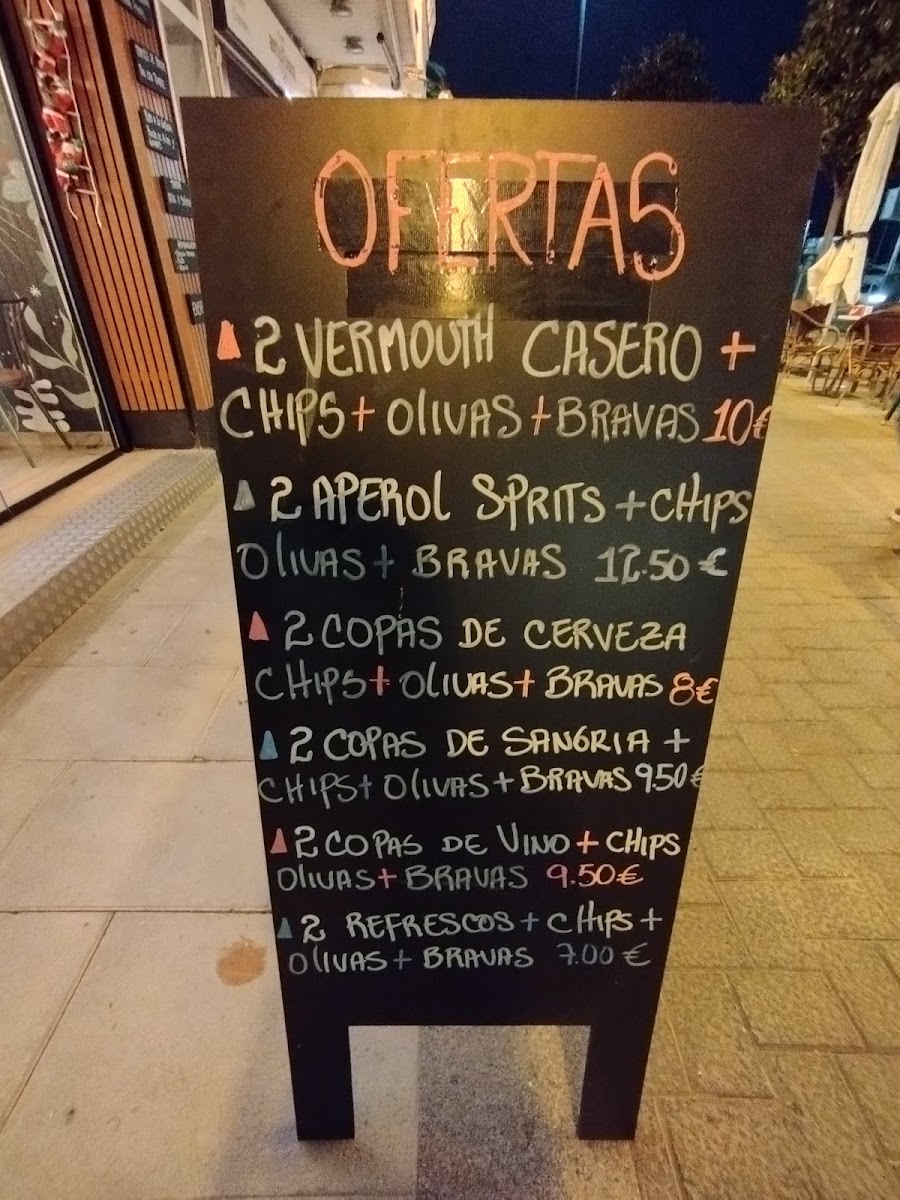 OFERTAS
2 VERMOUTH CASERO +
CHIPS + OLIVAS + BRAVAS 10€
2 APEROL SPRITS + CHIPS
OLIVAS + BRAVAS 12.50 €
2 COPAS DE CERVEZA
CHIPS + OLIVAS + BRAVAS 8€
2 COPAS DE SANGRIA +
CHIPS + OLIVAS + BRAVAS 9.50€
2 COPAS DE VINO + CHIPS
OLIVAS + BRAVAS 9.50€
2 REFRESCOS + CHIPS +
OLIVAS + BRAVAS 7.00 €